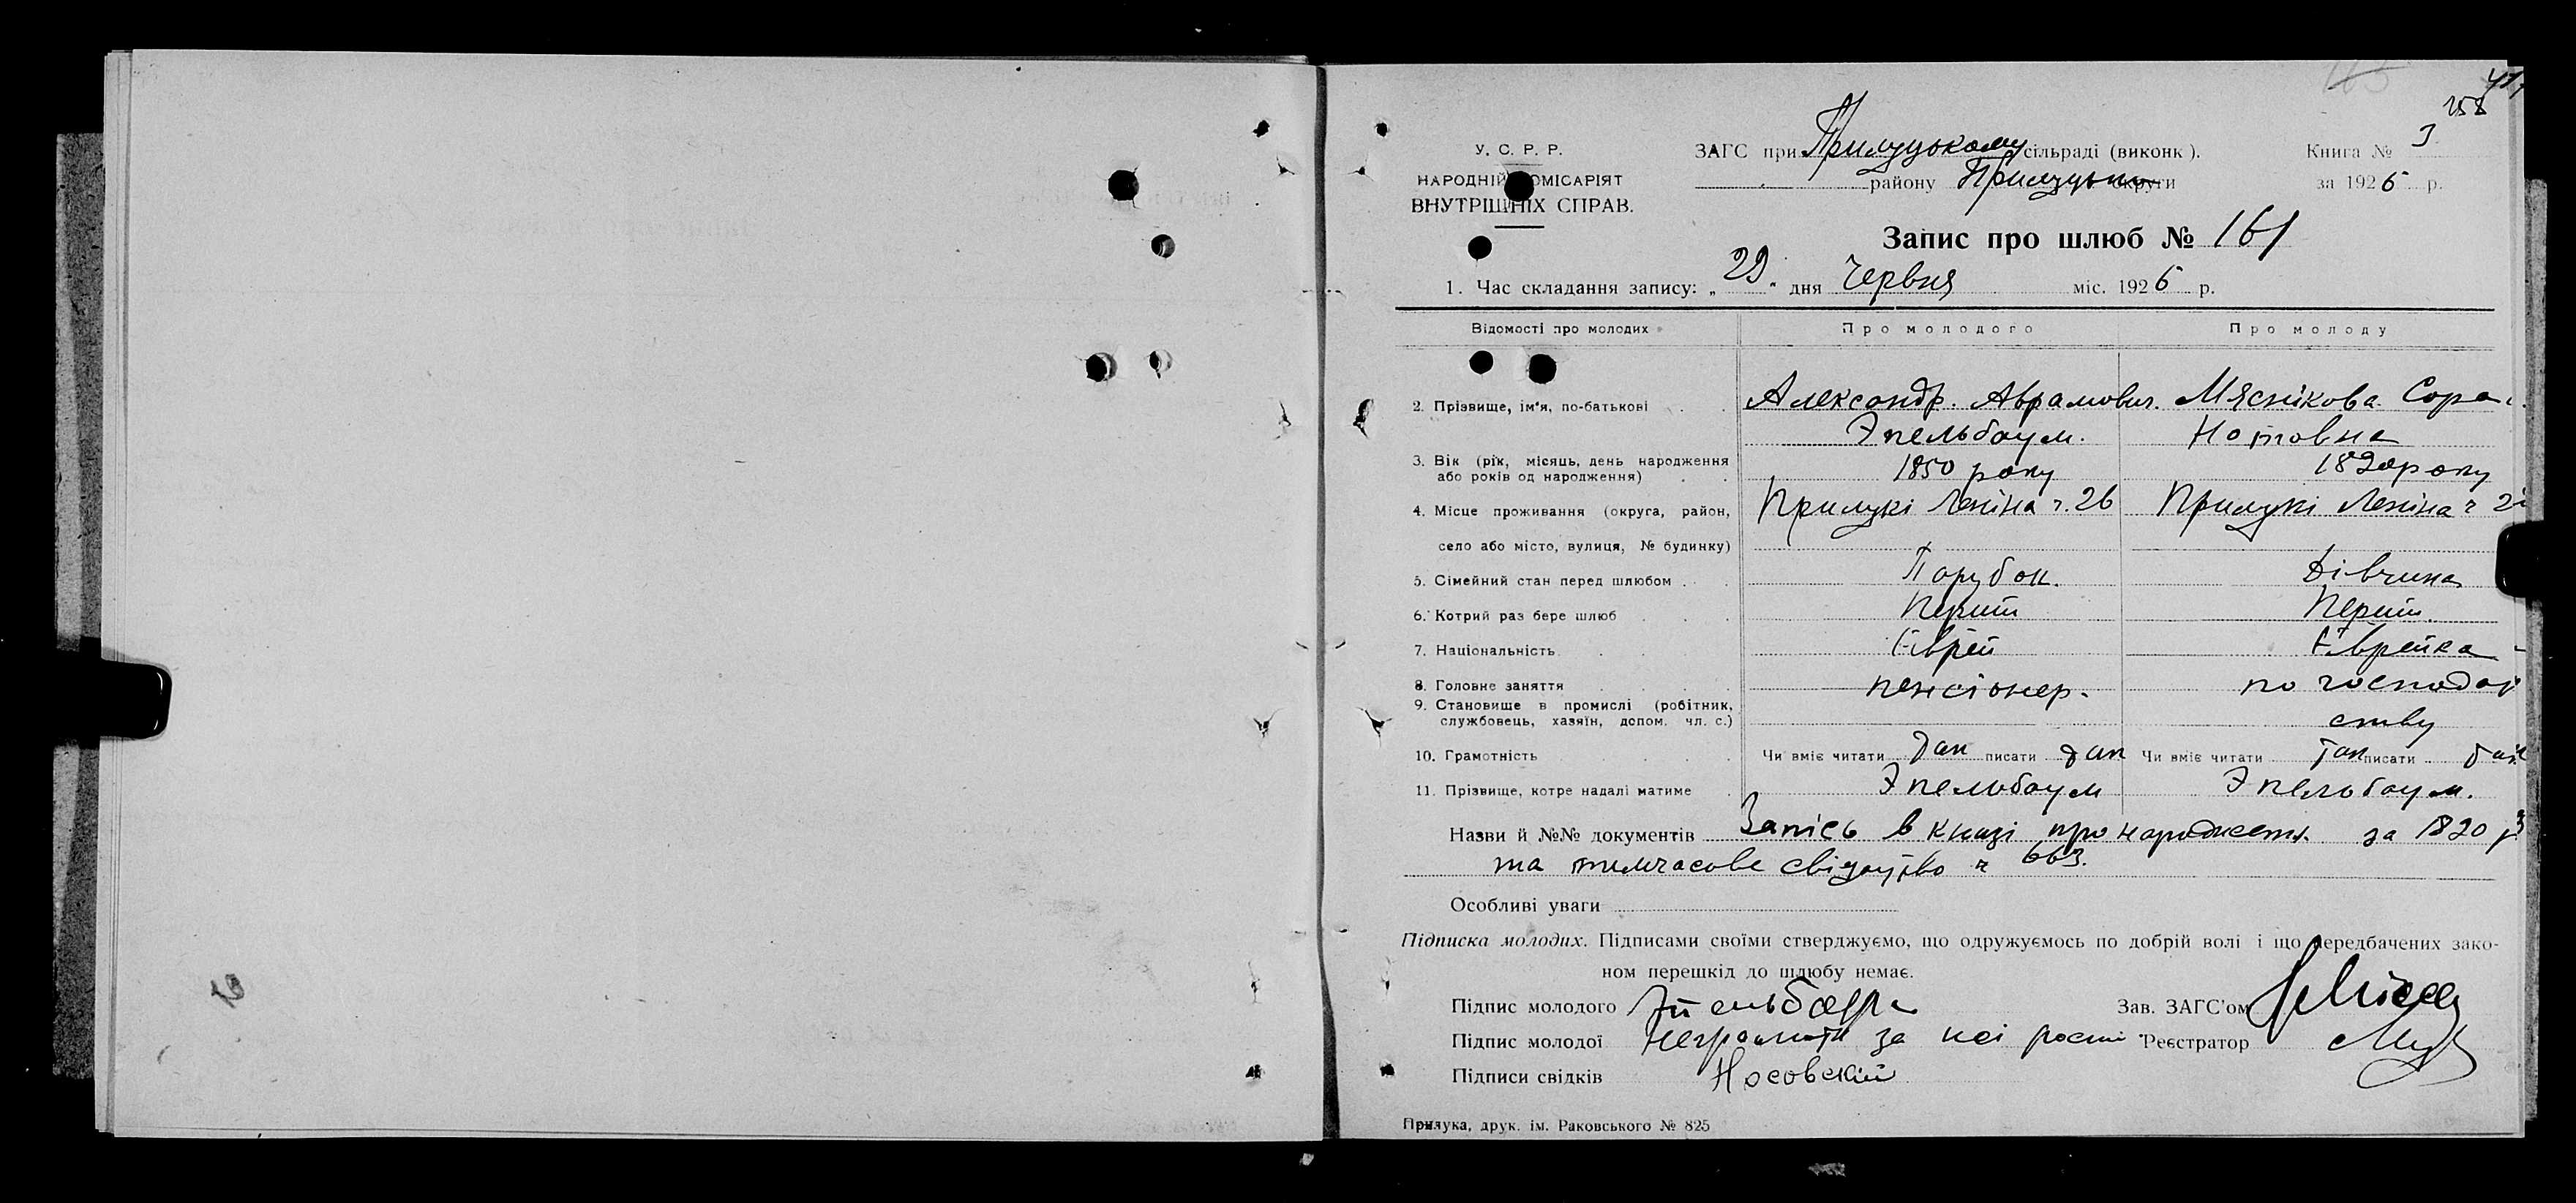 258
У. С. Р. Р.
НАРОДНІЙ КОМІСАРІЯТ
ВНУТРІШНІХ СПРАВ.
ЗАГС при Прилуцькому сільраді (виконк).
району Прилуцько округи
Книга № 3
за 1926 р.
Запис про шлюб № 161
1. Час складання запису: „29“ дня Червня міс. 1926 р.
Відомості про молодих Про молодого Про молоду
2. Прізвище, ім'я, по-батькові Александр. Аврамович. Мяснікова Сора
Эпельбаум. Нотовна
3. Вік (рік, місяць, день народження або років од народження) 1850 року 1820 року
4. Місце проживання (округа, район, Прилукі Леніна ч. 26 Прилукі Леніна ч
село або місто, вулиця, № будинку)
5. Сімейний стан перед шлюбом Парубок. Дівчина
6. Котрий раз бере шлюб Перший Перший.
7. Національність Єврей Єврейка
8. Головне заняття пенсіонер. по господар
9. Становище в промислі (робітник, службовець, хазяїн, допом. чл. с.) ству
10. Грамотність Чи вміє читати так писати так Чи вміє читати так писати так
11. Прізвище, котре надалі матиме Эпельбаум Эпельбаум.
Назви й №№ документів Запісь в книзі про народженн. за 1820 р
та тимчасове свідоцтво ч 663.
Особливі уваги
Підписка молодих. Підписами своїми стверджуємо, що одружуємось по добрій волі і що передбачених зако-
ном перешкід до шлюбу немає.
Підпис молодого Эпельбаум Зав. ЗАГС'ом
Підпис молодої Неграмотн за неї росп Реєстратор
Підписи свідків Носовский
Прилука, друк. ім. Раковського № 825